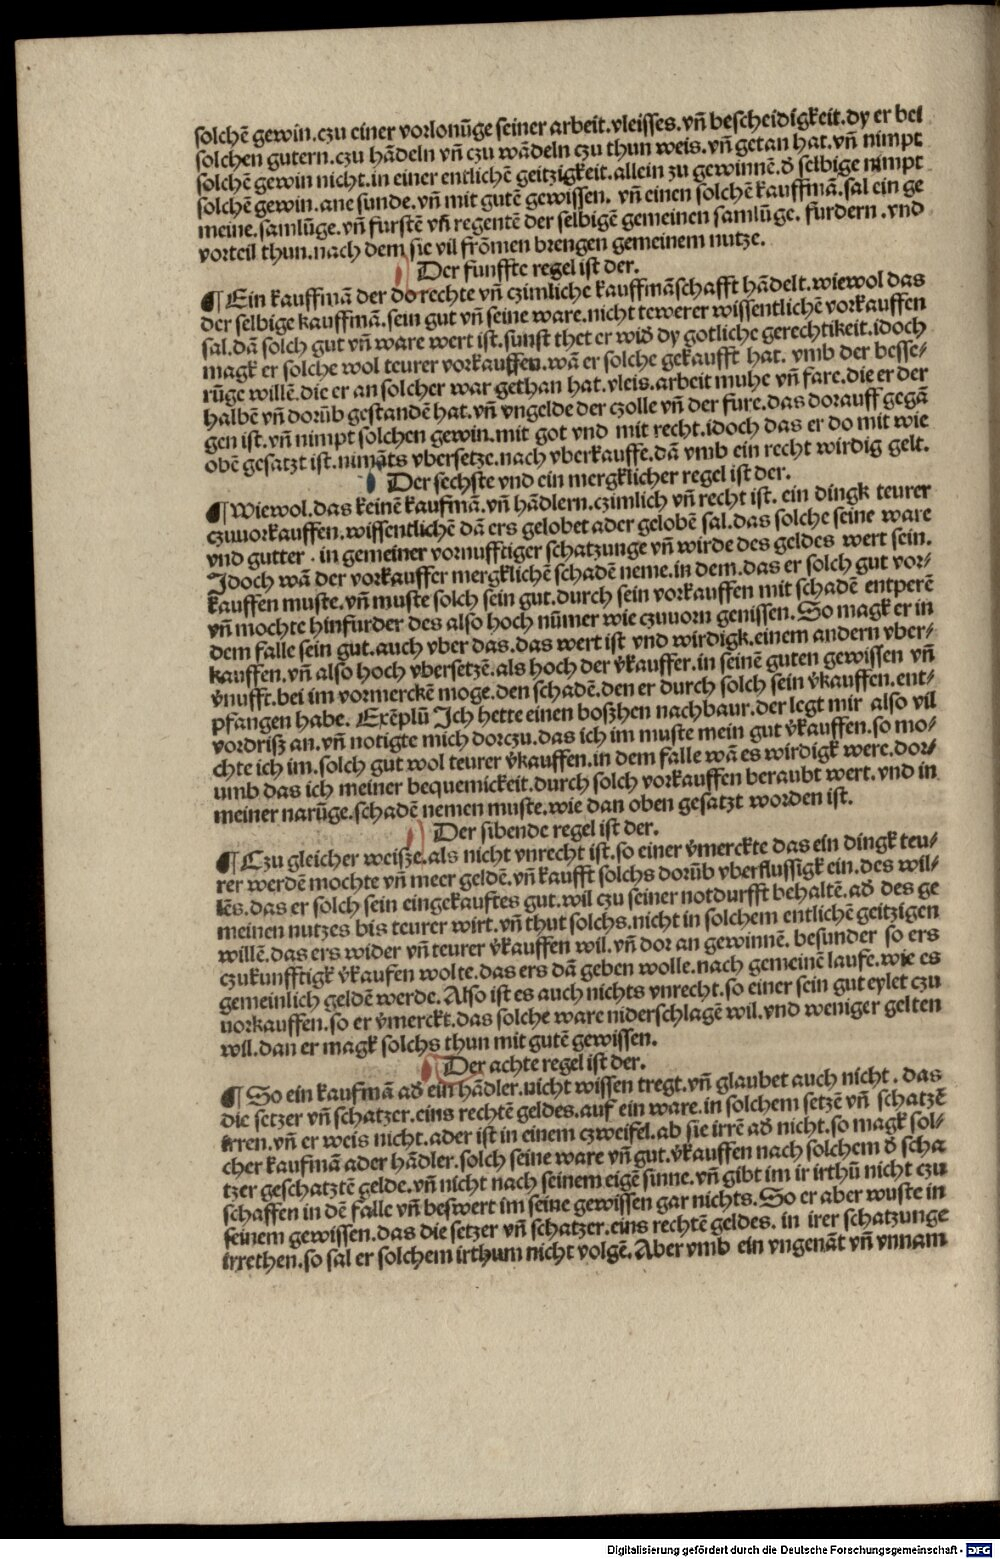 solchē gewin.czu einer vorlonūge seiner arbeit.vleisses.vn̄ bescheidigkeit.dy er bei
solchen gutern.czu hādeln vn̄ czu wādeln czu thun weis.vn̄ getan hat.vn̄ nimpt
solchē gewin nicht.in einer entlichē geitzigkeit.allein zu gewinnē.ð selbige nimpt
solchē gewin.ane sunde.vn̄ mit gutē gewissen. vn̄ einen solchē kauffmā.sal ein ge
meine.samlūge.vn̄ furstē vn̄ regentē der selbigē gemeinen samlūge. furdern.vnd
vorteil thun.nach dem sie vil frōmen brengen gemeinem nutze.
Der funffte regel ist der.
¶ Ein kauffmā der do rechte vn̄ czimliche kauffmāschafft hādelt.wiewol das
der selbige kauffmā.sein gut vn̄ seine ware.nicht tewerer wissentlichē vorkauffen
sal.dā solch gut vn̄ ware wert ist.sunst thet er wið dy gotliche gerechtikeit.idoch
magk er solche wol teurer vorkauffen.wā er solche gekaufft hat. vmb der besse⸗
rūge willē.die er an solcher war gethan hat.vleis.arbeit muhe vn̄ fare.die er der
halbē vn̄ dorūb gestandē hat.vn̄ vngelde der czolle vn̄ der fure.das dorauff gegā
gen ist.vn̄ nimpt solchen gewin.mit got vnd mit recht.idoch das er do mit wie
obē gesatzt ist.nimāts vbersetze.nach vberkauffe.dā vmb ein recht wirdig gelt.
Der sechste vnd ein mergklicher regel ist der.
¶ Wiewol.das keinē kaufmā.vn̄ hādlern.czimlich vn̄ recht ist. ein dingk teurer
czuuorkauffen.wissentlichē dā ers gelobet ader gelobē sal.das solche seine ware
vnd gutter . in gemeiner vornufftiger schatzunge vn̄ wirde des geldes wert sein.
Jdoch wā der vorkauffer mergklichē schadē neme.in dem.das er solch gut vor⸗
kauffen muste.vn̄ muste solch sein gut.durch sein vorkauffen mit schadē entperē
vn̄ mochte hinfurder des also hoch nūmer wie czuuorn genissen. So magk er in
dem falle sein gut.auch vber das.das wert ist vnd wirdigk.einem andern vber⸗
kauffen.vn̄ also hoch vbersetzē.als hoch der v̓kauffer.in seinē guten gewissen vn̄
v̓nufft.bei im vormerckē moge.den schadē.den er durch solch sein v̓kauffen.ent⸗
pfangen habe. Exēplū Jch hette einen boßhen nachbaur.der legt mir also vil
vordriß an.vn̄ notigte mich dorczu.das ich im muste mein gut v̓kauffen.so mo⸗
chte ich im.solch gut wol teurer v̓kauffen.in dem falle wā es wirdigk were.dor⸗
umb das ich meiner bequemickeit.durch solch vorkauffen beraubt wert.vnd in
meiner narūge.schadē nemen muste.wie dan oben gesatzt worden ist.
Der sibende regel ist der.
¶ Czu gleicher weiße.als nicht vnrecht ist.so einer v̓merckte das ein dingk teu⸗
rer werdē mochte vn̄ meer geldē.vn̄ kaufft solchs dorūb vberflussigk ein.des wil⸗
lēs.das er solch sein eingekauftes gut.wil czu seiner notdurfft behaltē.að des ge
meinen nutzes bis teurer wirt.vn̄ thut solchs.nicht in solchem entlichē geitzigen
willē.das ers wider vn̄ teurer v̓kauffen wil.vn̄ dor an gewinnē. besunder so ers
czukunfftigk v̓kaufen wolte.das ers dā geben wolle.nach gemeinē laufe.wie es
gemeinlich geldē werde. Also ist es auch nichts vnrecht.so einer sein gut eylet czu
uorkauffen.so er v̓merckt.das solche ware niderschlagē wil.vnd weniger gelten
wil.dan er magk solchs thun mit gutē gewissen.
Der achte regel ist der.
¶ So ein kaufmā að ein hādler.nicht wissen tregt.vn̄ glaubet auch nicht . das
die setzer vn̄ schatzer.eins rechtē geldes.auf ein ware.in solchem setzē vn̄ schatzē
irren.vn̄ er weis nicht.ader ist in einem czweifel.ab sie irrē að nicht.so magk sol⸗
cher kaufmā ader hādler.solch seine ware vn̄ gut.v̓kauffen nach solchem ð scha
tzer geschatztē gelde.vn̄ nicht nach seinem eigē sinne.vn̄ gibt im ir irthū nicht czu
schaffen in dē falle vn̄ beswert im seine gewissen gar nichts. So er aber wuste in
seinem gewissen.das die setzer vn̄ schatzer.eins rechtē geldes. in irer schatzunge
irrethen.so sal er solchem irthum nicht volgē. Aber vmb ein vngenāt vn̄ vnnam
Digitalisierung gefördert durch die Deutsche Forschungsgemeinschaft - DFG